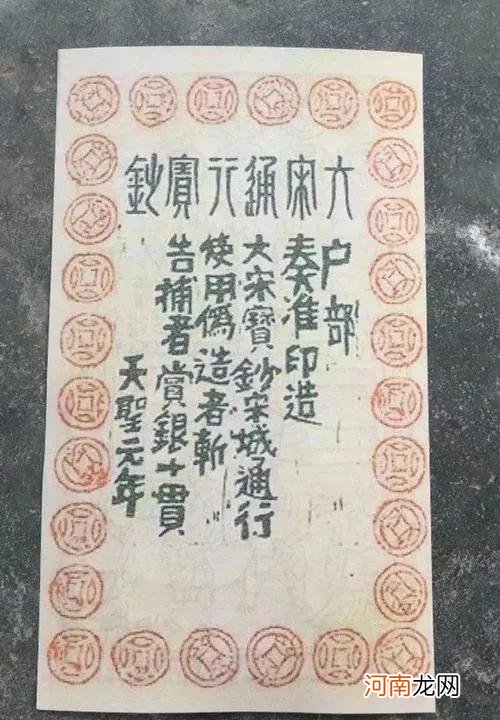 大宋通行寶鈔
户部
奏准印造
大宋寶鈔宋城通行
使用僞造者斬
告補者賞銀十貫
天聖元年
河南龙网